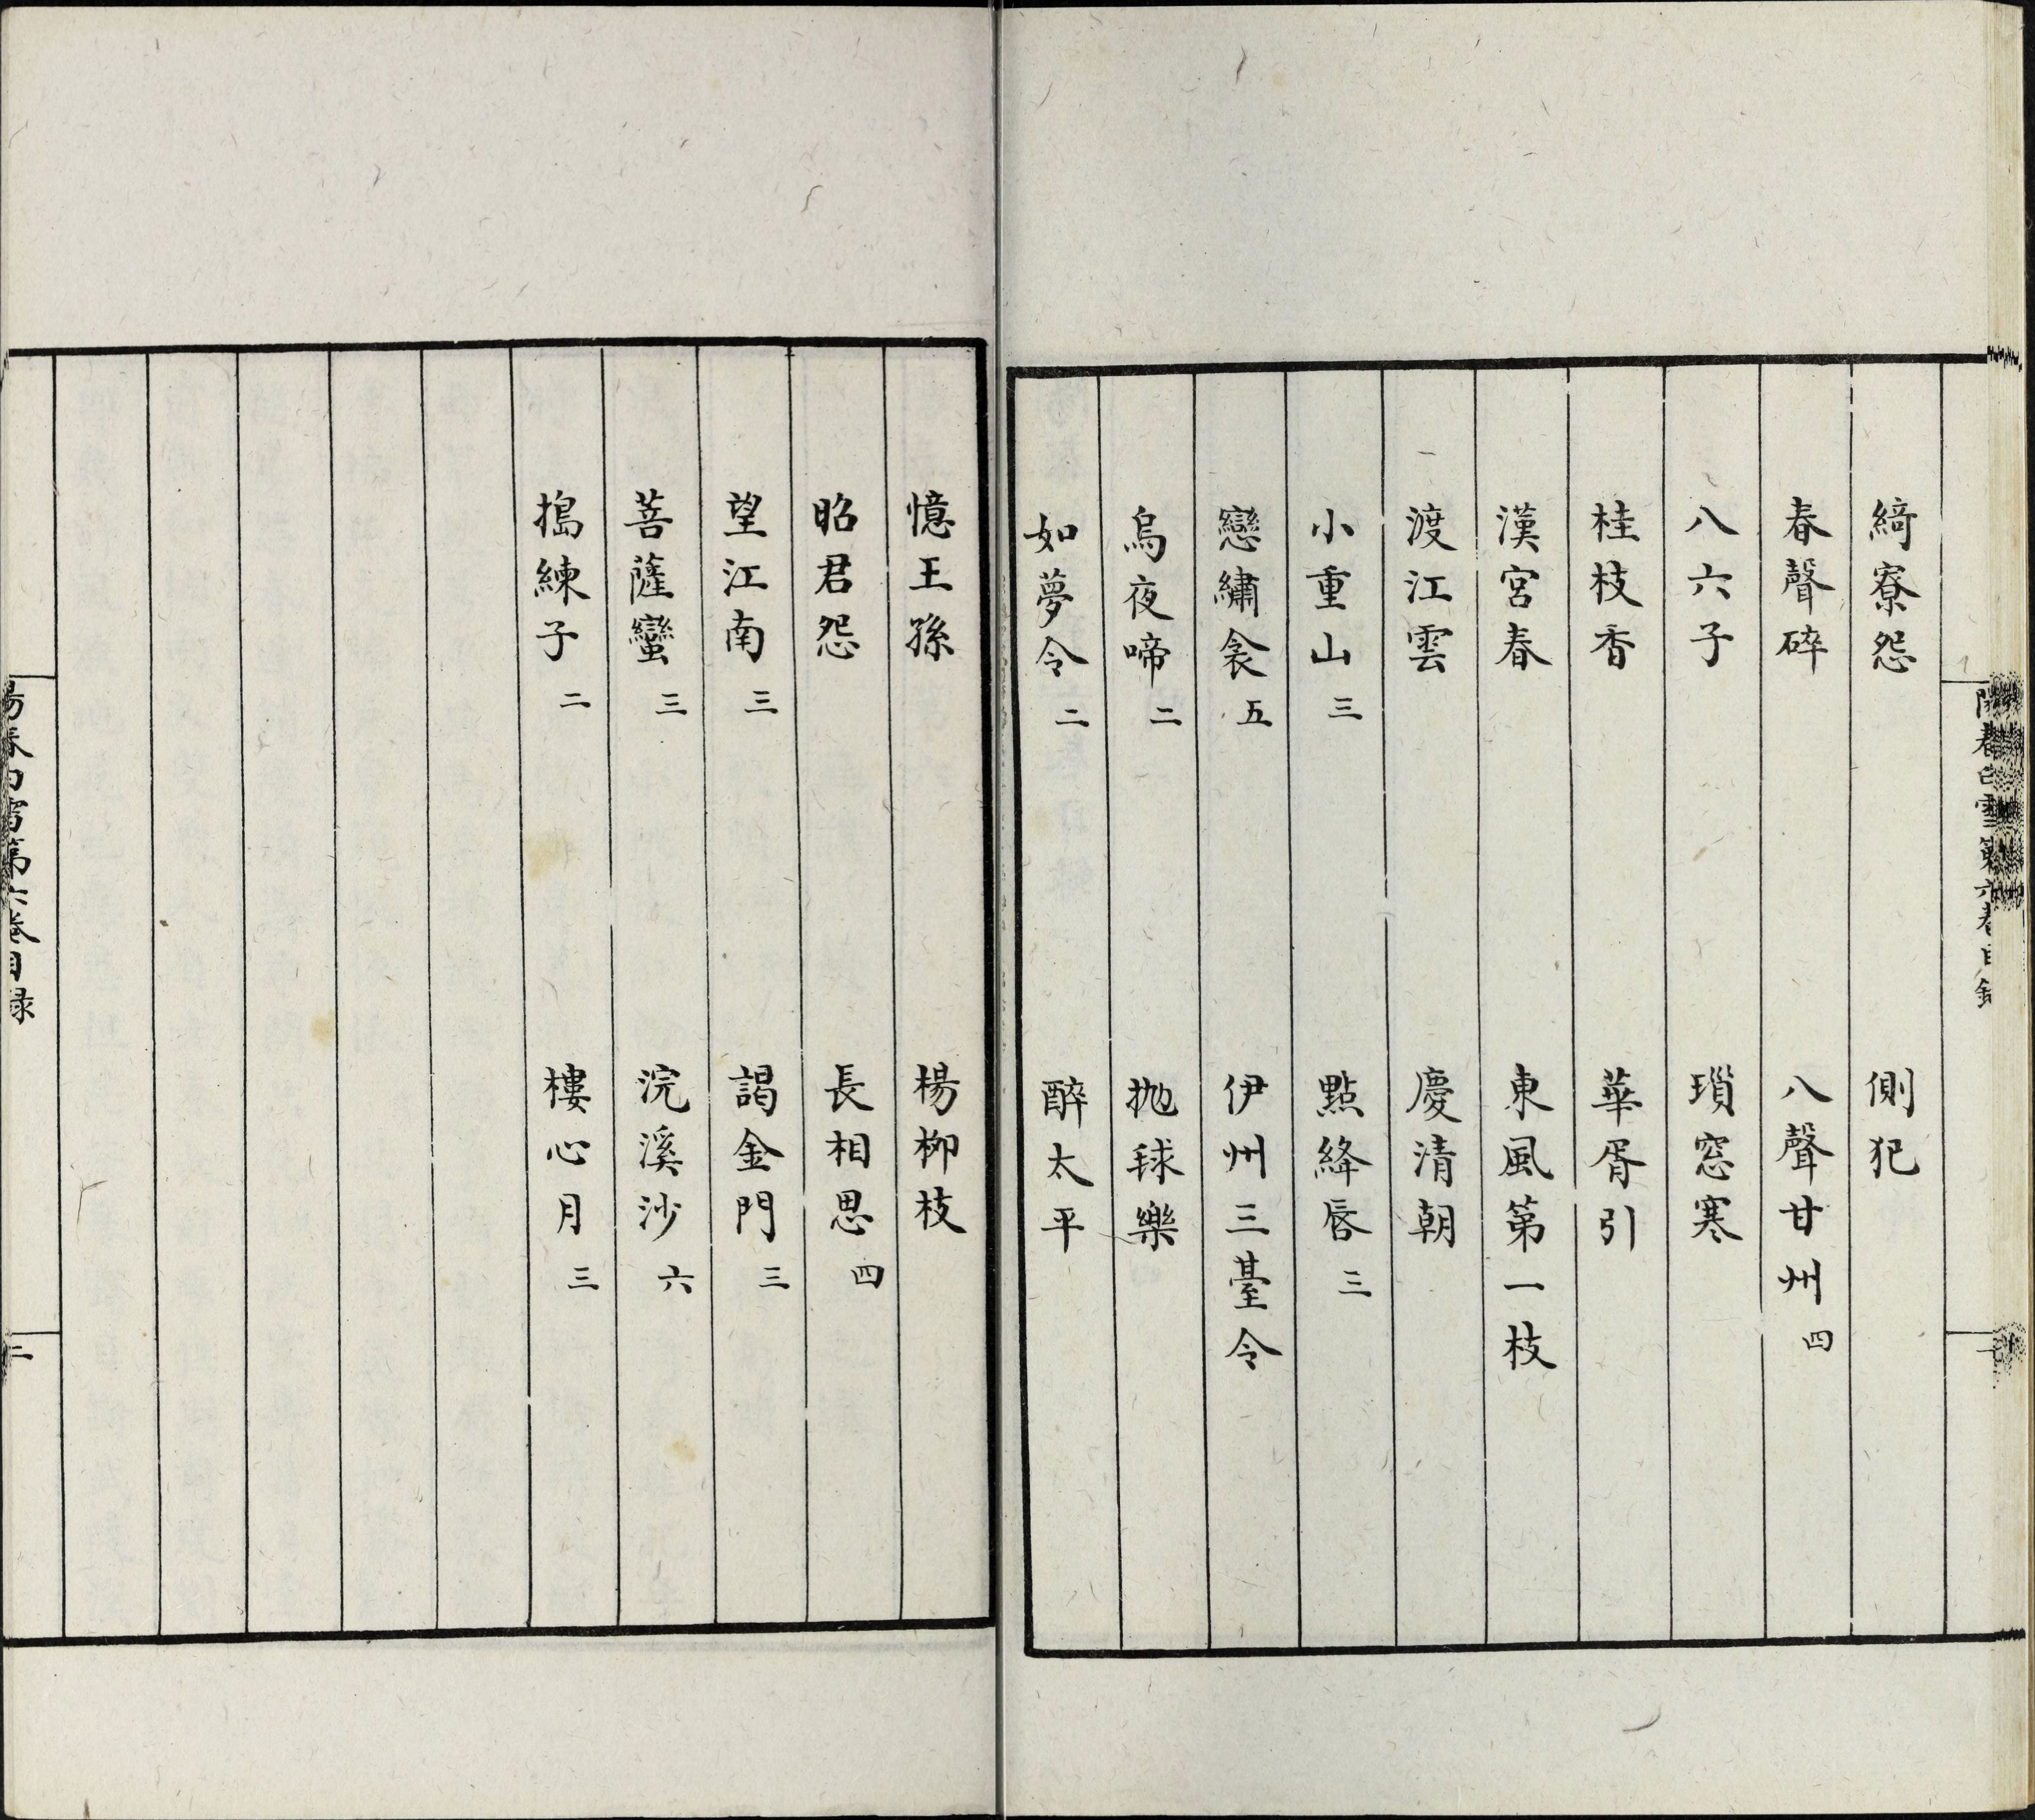 陽春白雪第六卷目錄
一
綺寮怨 側犯
春聲碎 八聲甘州 四
八六子 瑣窓寒
桂枝香 華胥引
漢宮春 東風第一枝
渡江雲 慶清朝
小重山 三 點絳唇 三
戀繡衾 五 伊州三臺令
烏夜啼 二 拋球樂
如夢令 二 醉太平
憶王孫 楊柳枝
昭君怨 長相思 四
望江南 三 謁金門 三
菩薩蠻 三 浣溪沙 六
搗練子 二 樓心月 三
陽春白雪第六卷目録
二